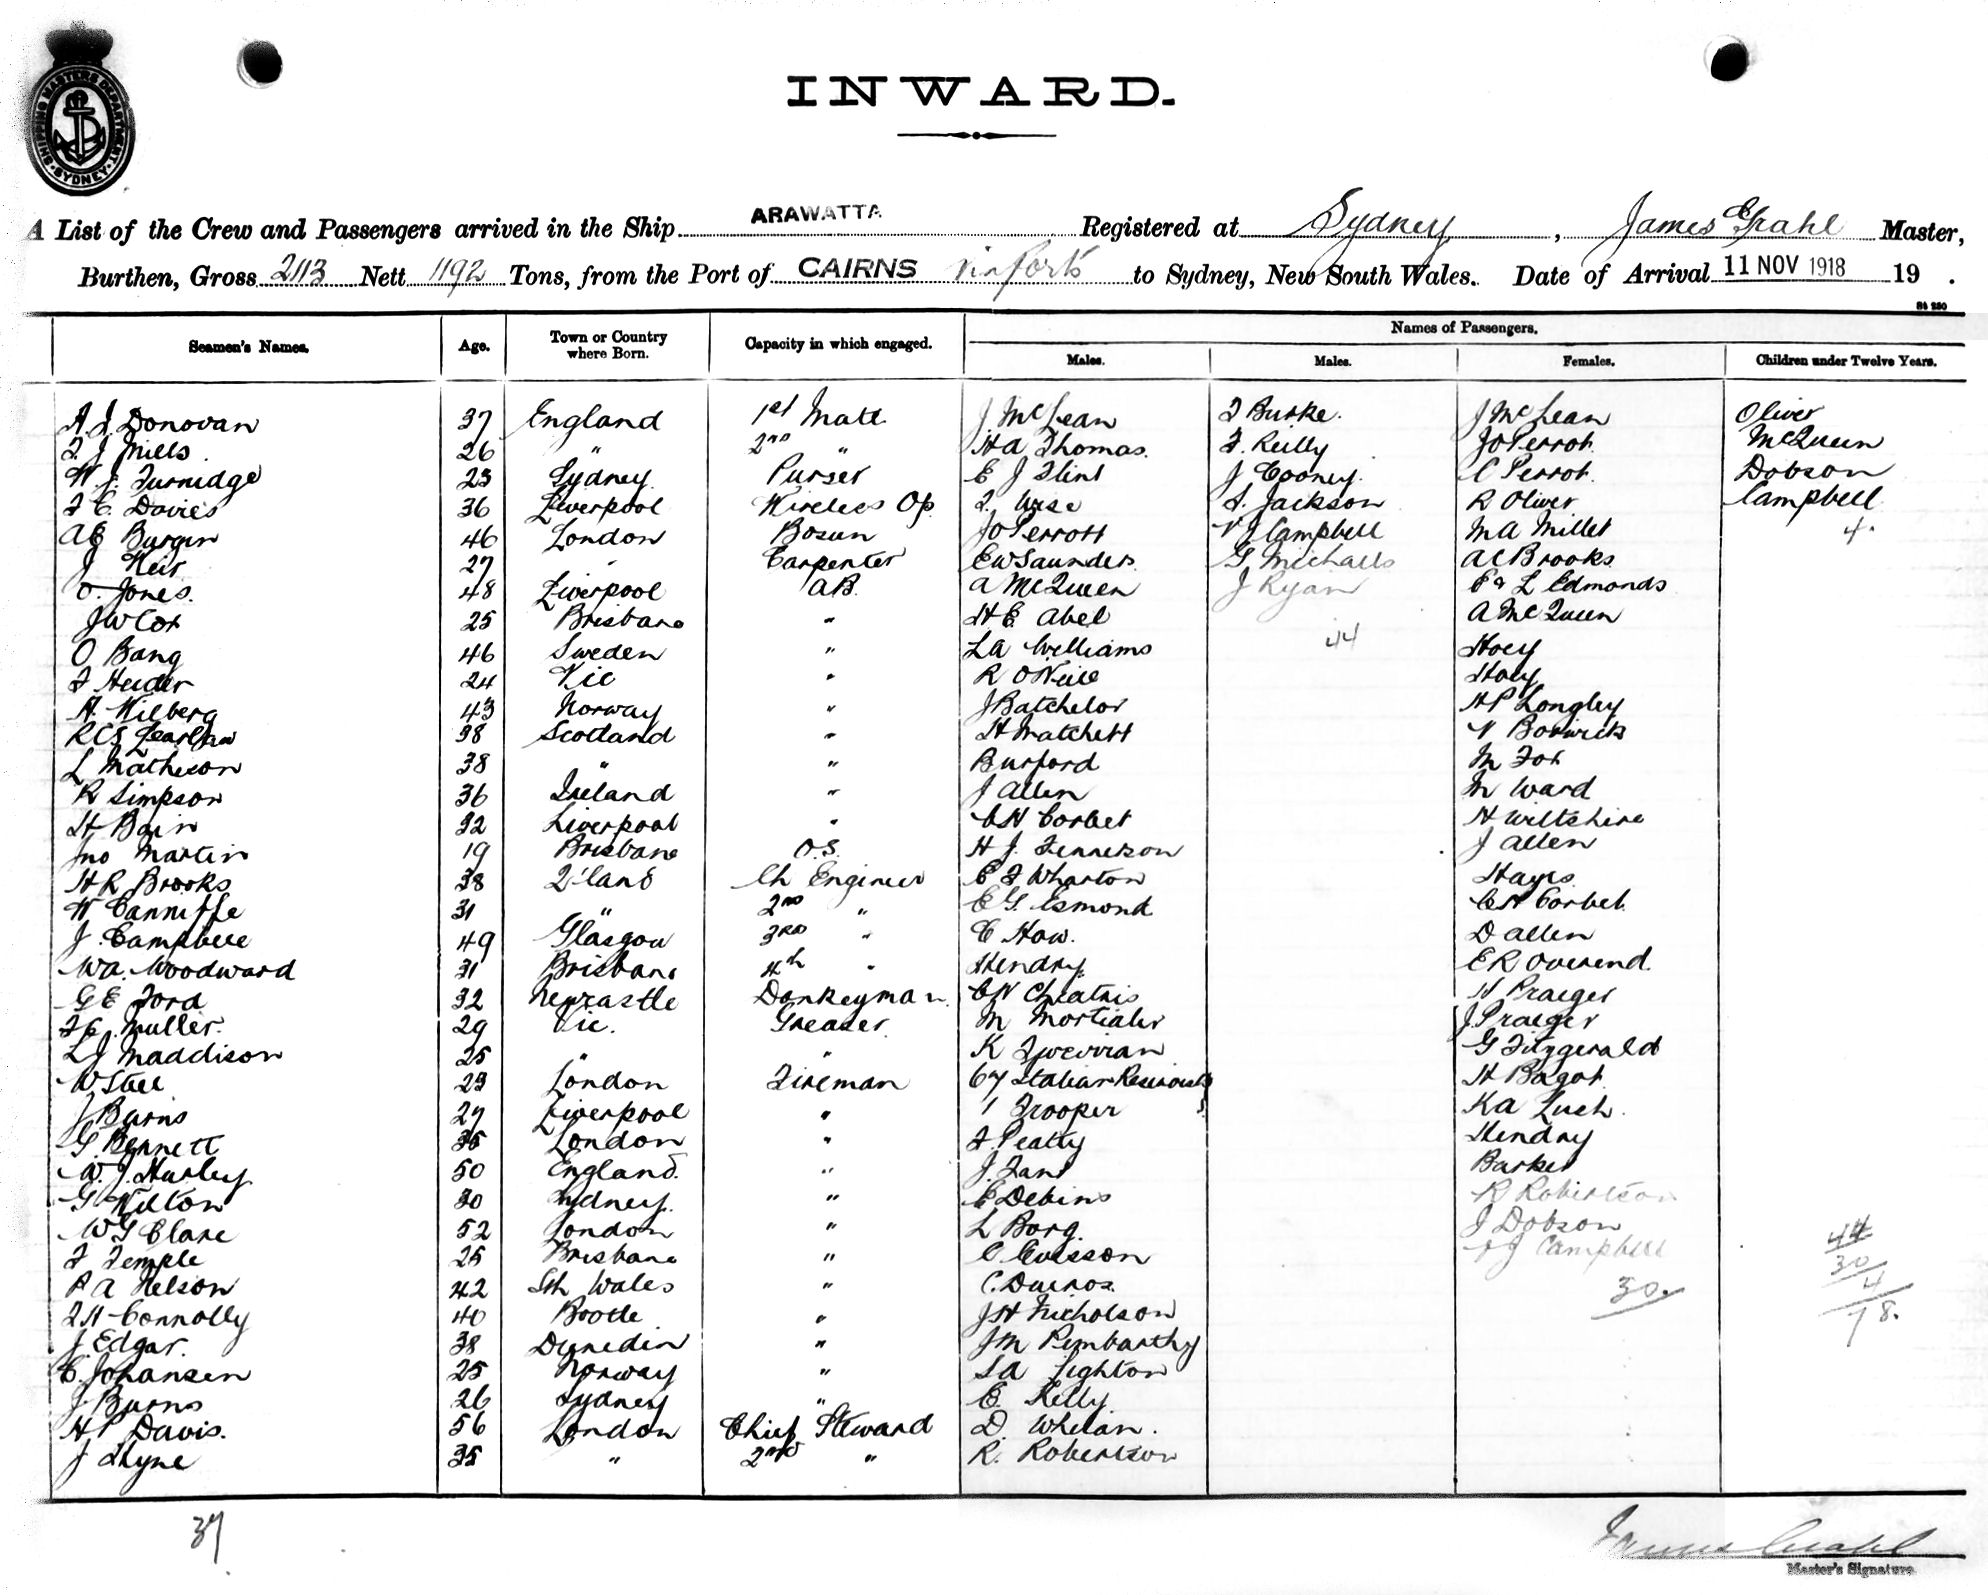 SHIPPING MASTERS DEPARTMENT · SYDNEY ·
INWARD.
A List of the Crew and Passengers arrived in the Ship ARAWATTA Registered at Sydney, James Grahl Master,
Burthen, Gross 2113 Nett 1192 Tons, from the Port of CAIRNS via ports to Sydney, New South Wales. Date of Arrival 11 NOV 1918 19 .
St 250
Seamen's Names. Age. Town or Country where Born. Capacity in which engaged. Names of Passengers.
Males. Males. Females. Children under Twelve Years.
A. J. Donovan 37 England 1st Mate J McLean F Burke. J McLean Oliver
F J Mills 26 " 2nd " H A Thomas. F. Reilly Jo Perrot McQueen
W. J. Turnidge 23 Sydney Purser E J Flint J Cooney. C Perrot. Dobson
F E Davies 36 Liverpool Wireless Op. F. Wise S. Jackson R Oliver Campbell
A E Burgin 46 London Bosun Jo Perrott V J Campbell M A Millet 4.
J Keir 27 " Carpenter E W Saunders G Michaels A C Brooks
O. Jones. 48 Liverpool A B. A McQueen J Ryan E & L Edmonds
J W Cox 25 Brisbane " H E Abel A McQueen
O Bang 46 Sweden " L A Williams 44 Hoey
F Heider 24 Vic " R O'Neill Hoey
A. Hilberg 43 Norway " J Batchelor H P Longley
38 Scotland " H Matchett V Borwick
L Matheson 38 " " Burford M Fox
R Simpson 36 Ireland " J Allen M Ward
H Bain 32 Liverpool " C H Corbet H Wiltshire
Jno Martin 19 Brisbane O.S. H J. Fennerson J Allen
H R Brooks 38 Q'land Ch Engineer E F Wharton Hayes
W Canniffe 31 " 2nd " E G. Esmond C H Corbet.
J. Campbell 49 Glasgow 3rd " E How. D Allen
W A. Woodward 31 Brisbane 4th " Hendry. E R Overend.
G E Ford 32 Newcastle Donkeyman H Praeger
F C. Muller. 29 Vic. Greaser. M J. Praeger
L J Maddison 25 " " K G Fitzgerald
W Steel 23 London Fireman 67 Italian Reservists H Bagot
J Burns 27 Liverpool " 1 Trooper K A Lush.
G. Bennett 35 London " F. Peatty Hendry
W. J. Hurley 50 England. " J. Barker
G Hilton 30 Sydney. " E Debins R Robertson
W G Clare 52 London " L Borg. J Dobson 44
F Temple 25 Brisbane " V J Campbell 30
P A Nelson 42 Sth Wales " 30. 4
F H Connolly 40 Bootle " J H Nicholson 78.
J. Edgar. 38 Dunedin " J M Pembarthy
C. Johansen 25 Norway " S A Lighton
J Burns 26 Sydney " E. Kelly
H P Davis. 56 London Chief Steward D. Whelan.
J Thyne 35 " 2nd " R. Robertson
37
James Grahl
Master's Signature.